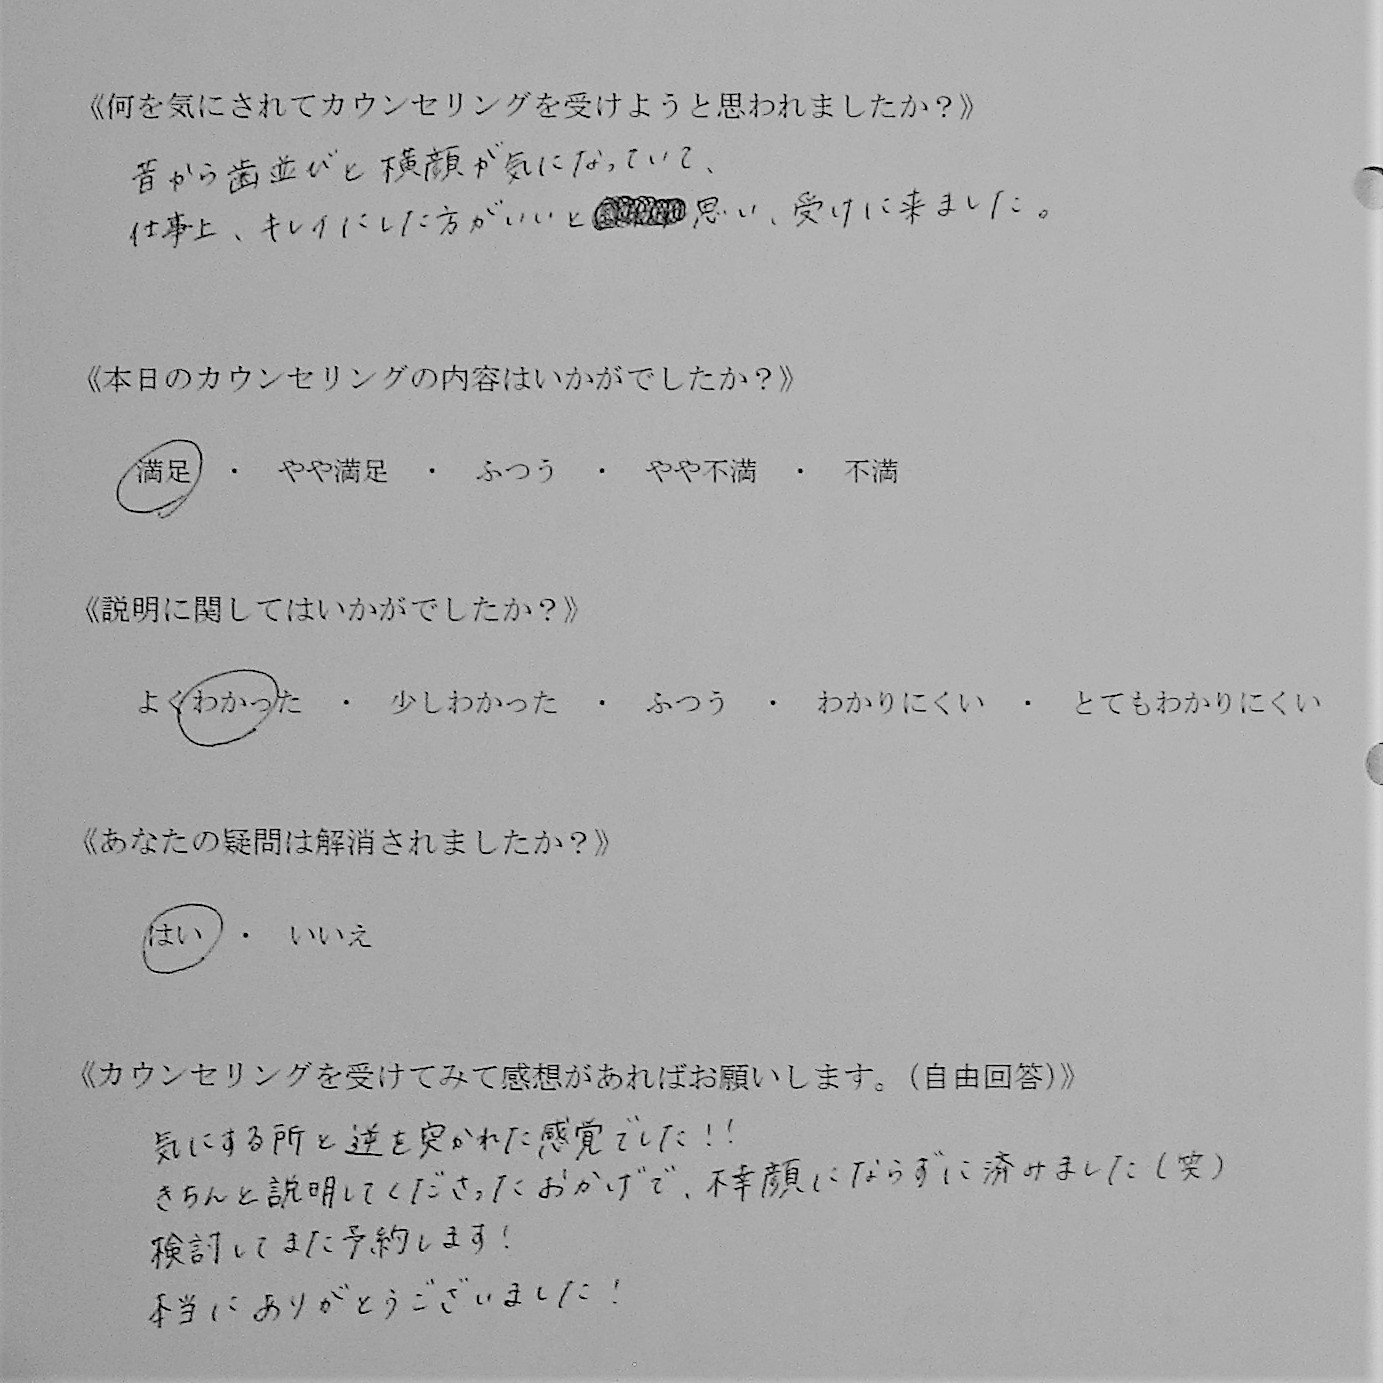 《何を気にされてカウンセリングを受けようと思われましたか？》
昔から歯並びと横顔が気になっていて、
仕事上、キレイにした方がいいと思い、受けに来ました。
《本日のカウンセリングの内容はいかがでしたか？》
満足 ・ やや満足 ・ ふつう ・ やや不満 ・ 不満
《説明に関してはいかがでしたか？》
よくわかった ・ 少しわかった ・ ふつう ・ わかりにくい ・ とてもわかりにくい
《あなたの疑問は解消されましたか？》
はい ・ いいえ
《カウンセリングを受けてみて感想があればお願いします。(自由回答)》
気にする所と逆を突かれた感覚でした!!
きちんと説明してくださったおかげで、不幸顔にならずに済みました(笑)
検討してまた予約します!
本当にありがとうございました!